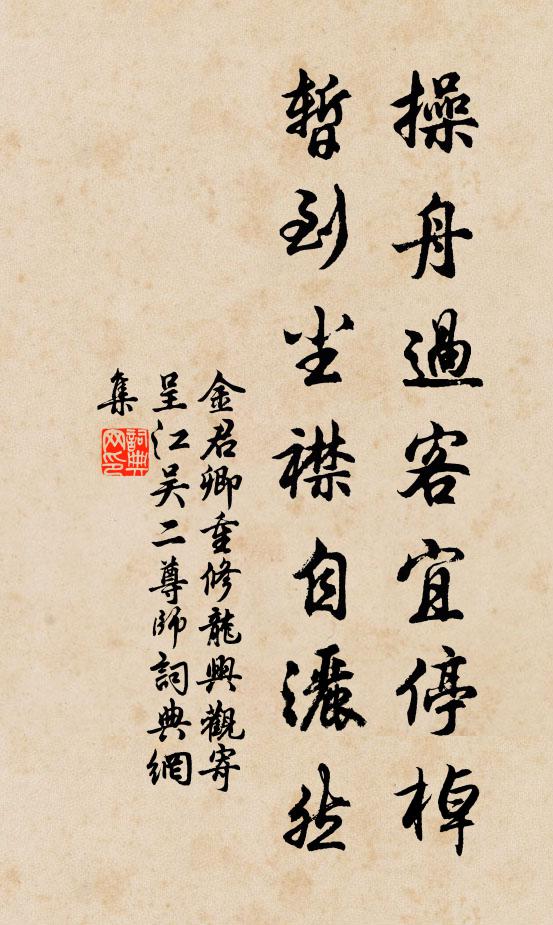 操舟過客宜停棹
暫到尘襟自灑然
金君卿重修龍興觀寄
呈江吴二尊師詞典網
集
詞典
网印